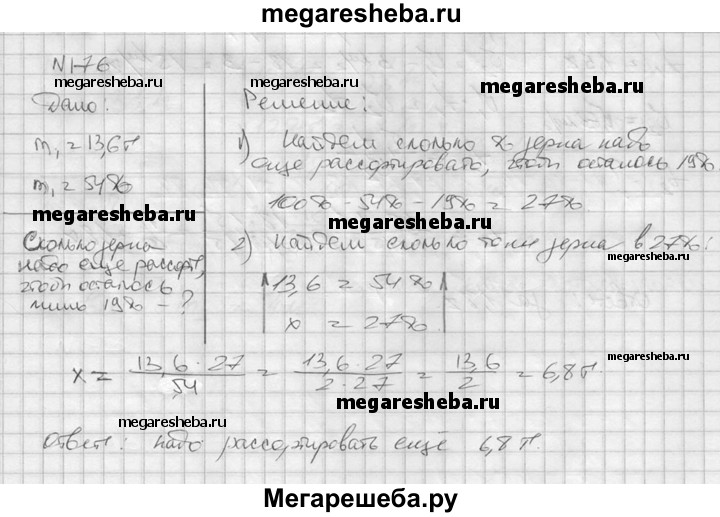 megaresheba.ru
N176
megaresheba.ru
megaresheba.ru
megaresheba.ru
Дано:
Решение:
m₁ = 13,6т
m₁ = 54%
1) Найдем сколько % зерна надо
еще рассортировать, чтоб осталось 19%
100% - 54% - 19% = 27%
megaresheba.ru
megaresheba.ru
Сколько зерна
надо еще рассорт,
чтоб осталось
лишь 19% - ?
2) Найдем сколько тонн зерна в 27%:
13,6 = 54%
x = 27%
megaresheba.ru
x = 13,6·27/54 = 13,6·27/2·27 = 13,6/2 = 6,8т
megaresheba.ru
megaresheba.ru
megaresheba.ru
Ответ: надо рассортировать ещё 6,8т.
megaresheba.ru
Мегарешеба.ру